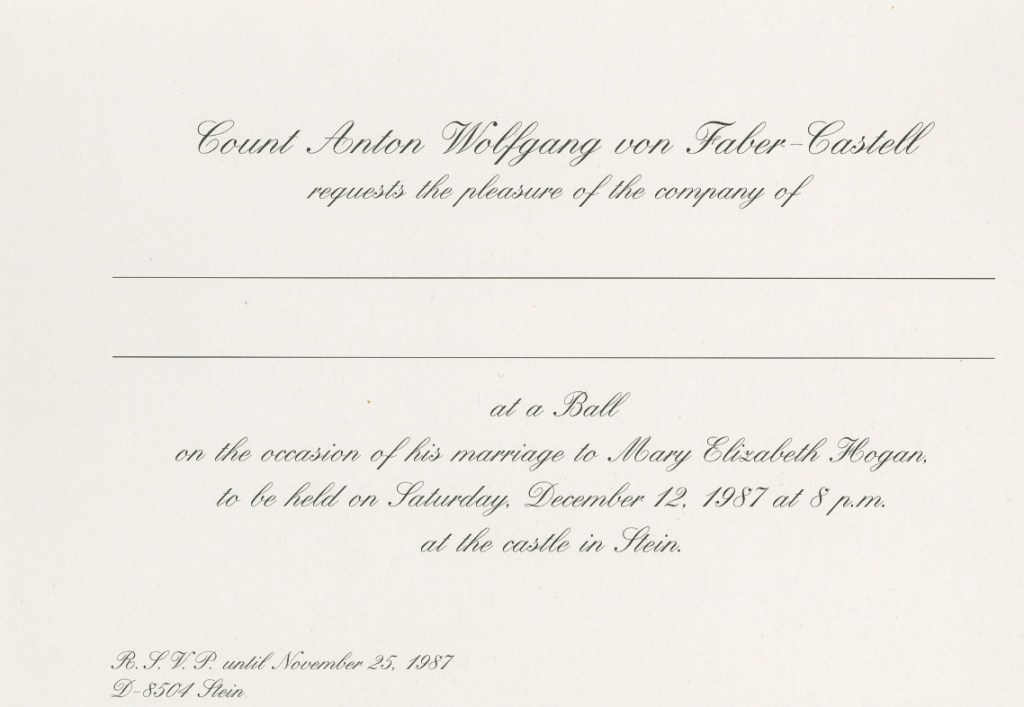 Count Anton Wolfgang von Faber-Castell
requests the pleasure of the company of
at a Ball
on the occasion of his marriage to Mary Elizabeth Hogan,
to be held on Saturday, December 12, 1987 at 8 p.m.
at the castle in Stein.
R.S.V.P. until November 25, 1987
D-8504 Stein